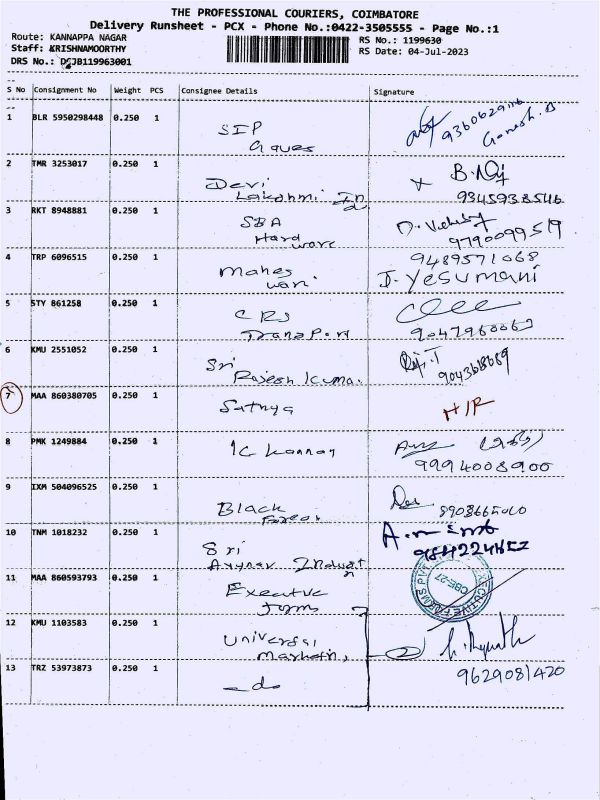 THE PROFESSIONAL COURIERS, COIMBATORE
Delivery Runsheet - PCX - Phone No.:0422-3505555 - Page No.:1
Route: KANNAPPA NAGAR RS No.: 1199630
Staff: KRISHNAMOORTHY RS Date: 04-Jul-2023
DRS No.: DSJB119963001
S No Consignment No Weight PCS Consignee Details Signature
1 BLR 5950298448 0.250 1 SIP
Ganesh.B
2 TMR 3253017 0.250 1 Devi B.
Lakshmi In 9345938546
3 RKT 8948881 0.250 1 SBA
Hard ware 9790099519
4 TRP 6096515 0.250 1 Mahes 9489571068
wari J. Yesumani
5 STY 861258 0.250 1 CRS
Transport 9047960063
6 KMU 2551052 0.250 1 Sri
Rajesh Kumar
7 MAA 860380705 0.250 1 Sathya
8 PMK 1249884 0.250 1 K Kannan
9994008900
9 IXM 504096525 0.250 1 Black
Forest
10 TNM 1018232 0.250 1 Sri
11 MAA 860593793 0.250 1 Executive
forms
CBE-27
12 KMU 1103583 0.250 1 Universal
2
13 TRZ 53973873 0.250 1 - do 9629081420